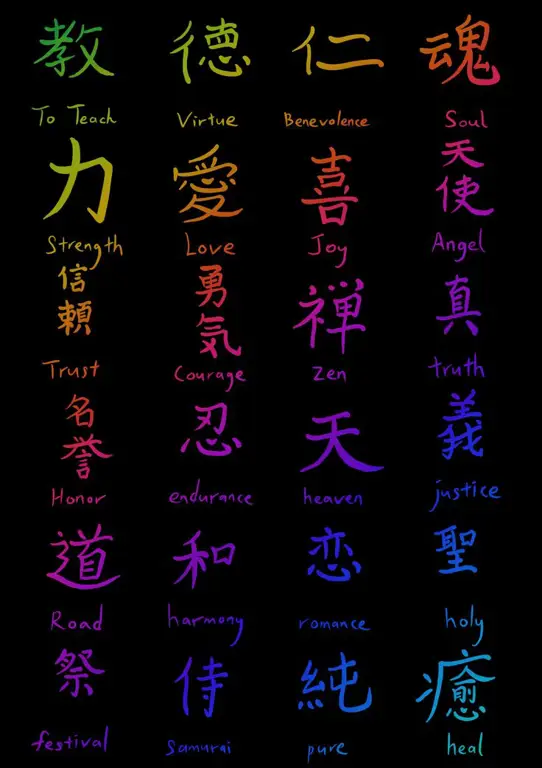 教 德 仁 魂
To Teach Virtue Benevolence Soul
力 愛 喜 天使
Strength Love Joy Angel
信頼 勇気 禅 真
Trust Courage Zen truth
名誉 忍 天 義
Honor endurance heaven justice
道 和 恋 聖
Road harmony romance holy
祭 侍 純 癒
festival Samurai pure heal